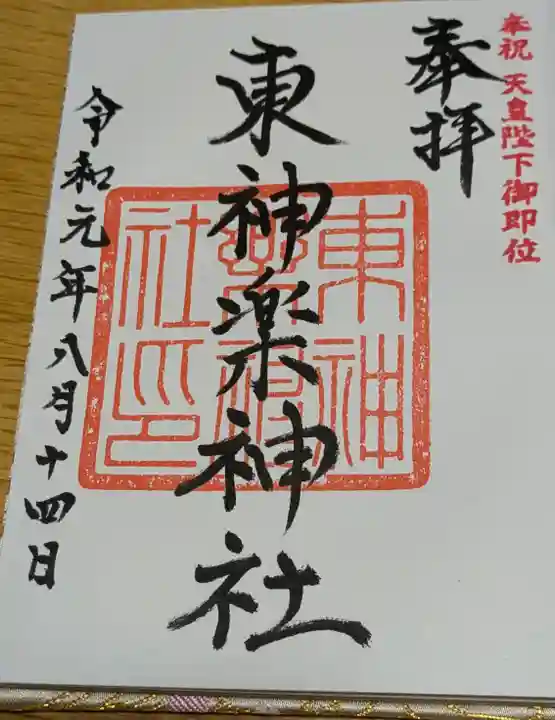 奉祝 天皇陛下御即位
奉拝
東神楽神社
東神楽神社印
令和元年八月十四日